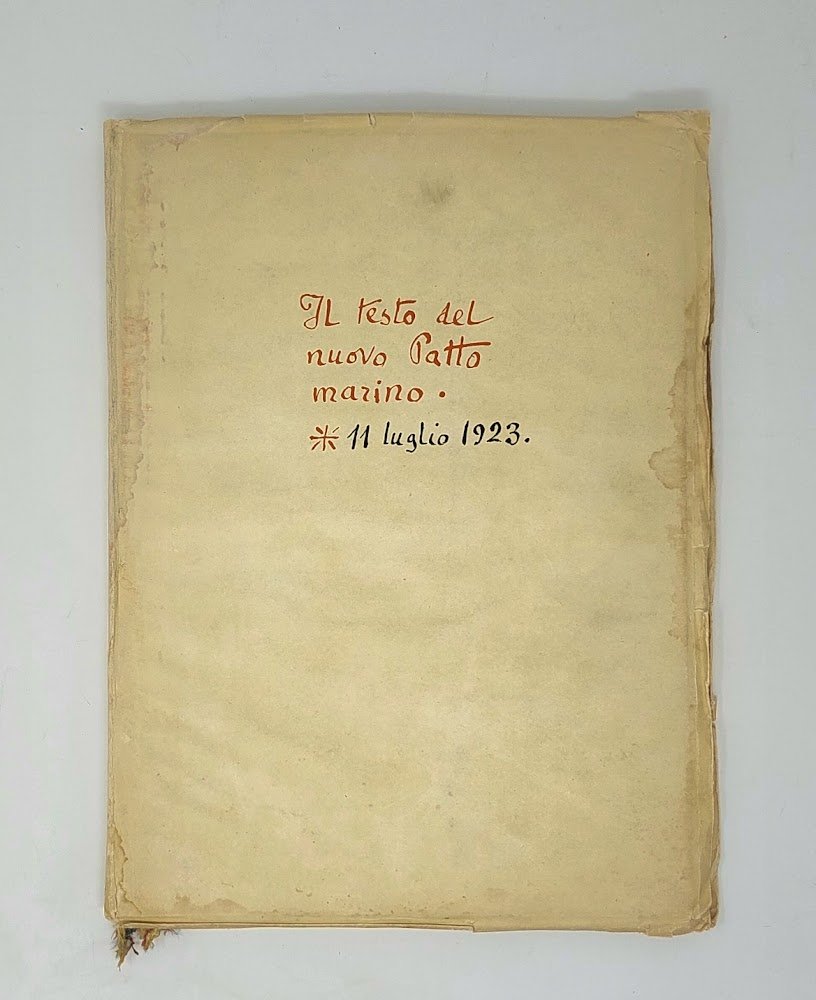 Il testo del
nuovo Patto
marino.
* 11 luglio 1923.